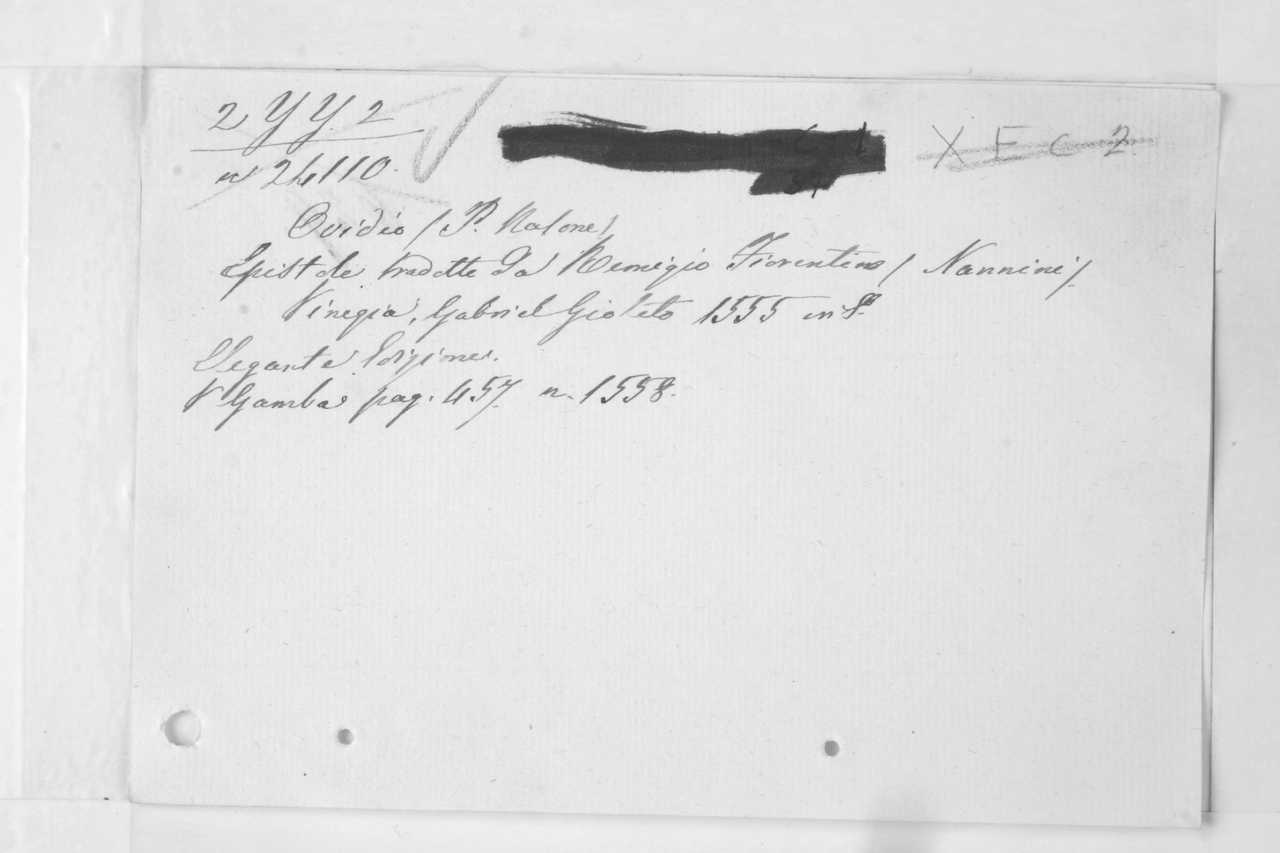 2 YY. 2
X F C 2
n 24110.
Ovidio (P. Nasone)
Epistole tradotte da Remigio Fiorentino (Nannini).
Vinegia, Gabriel Gioleto 1555 in 8.º
Elegante Edizione.
V Gamba pag. 457. n. 1558.